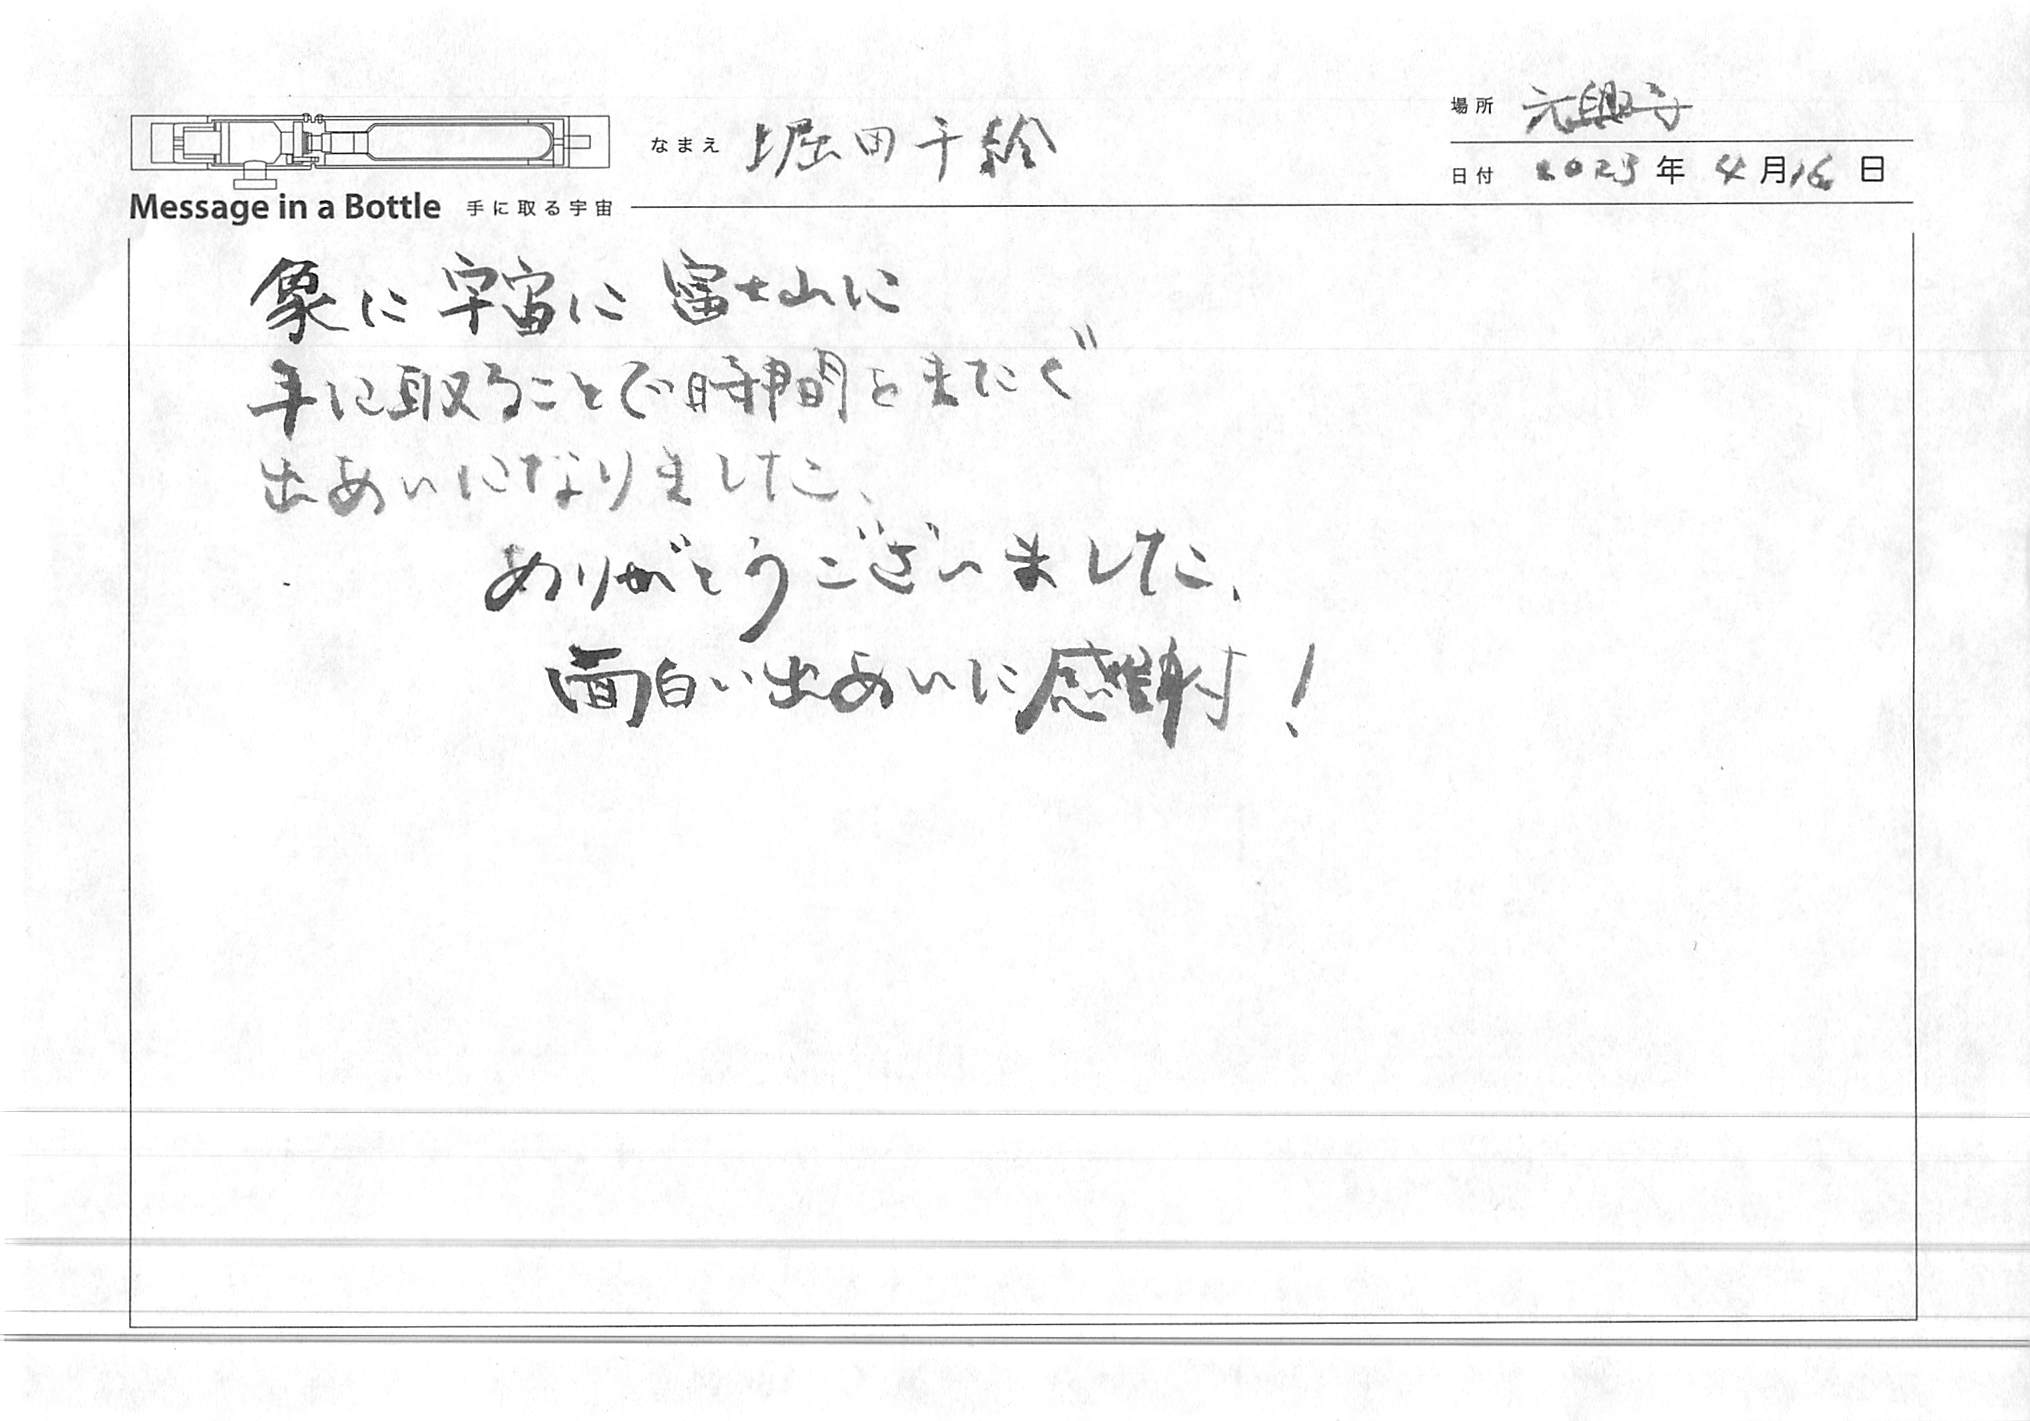 場所 元興寺
なまえ 堀田千絵
日付 2023年4月16日
Message in a Bottle 手に取る宇宙
象に 宇宙に 富士山に
手に取ることで時間をまたぐ
出あいになりました、
ありがとうございました、
面白い出あいに感謝!